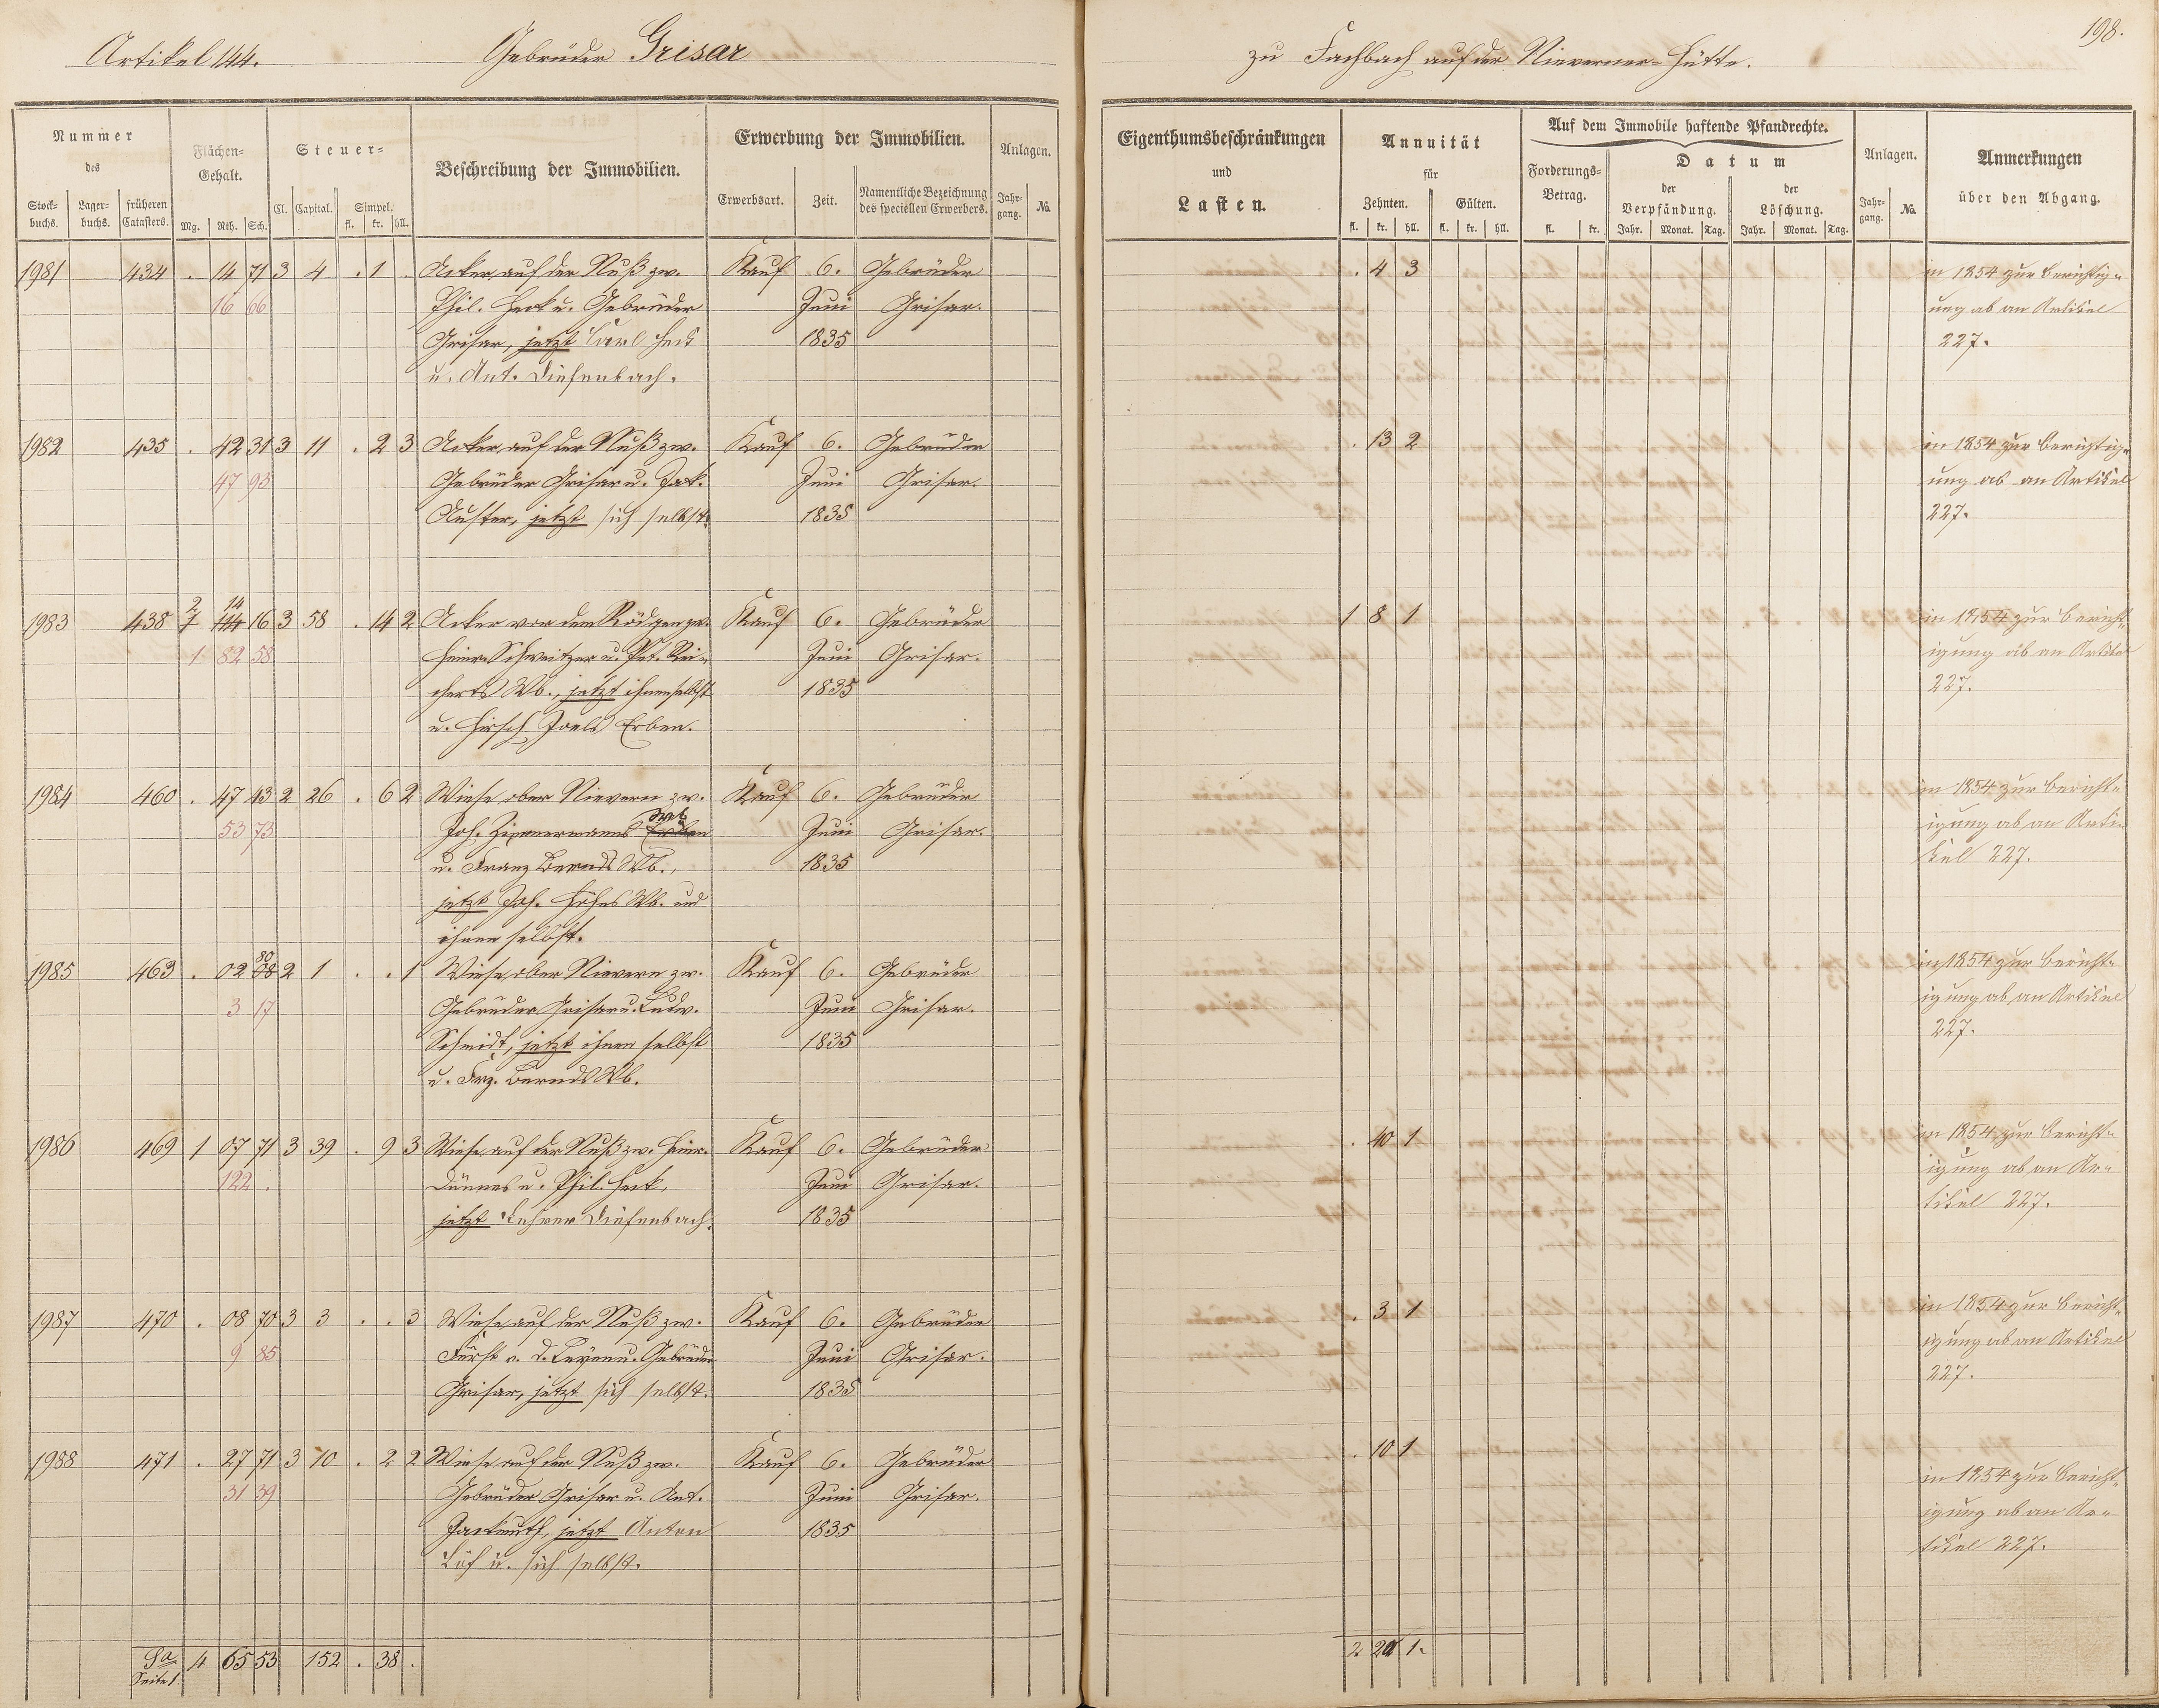 Artikel 144. Gebrüder Grisar
zu Fachbach auf der Nieverner-Hütte. 198.
Nummer des
Stock-buchs. Lager-buchs. früheren Catasters.
Flächen-Gehalt.
Mg. Rth. Sch.
Steuer-
Cl. Capital. Simpel.
fl. kr. hll.
Beschreibung der Immobilien.
Erwerbung der Immobilien.
Erwerbsart. Zeit. Namentliche Bezeichnung des speciellen Erwerbers.
Anlagen.
Jahr-gang. No.
Eigenthumsbeschränkungen
und
Lasten.
Annuität
für
Zehnten. Gülten.
fl. kr. hll. fl. kr. hll.
Auf dem Immobile haftende Pfandrechte.
Forderungs-Betrag.
fl. kr.
Datum
der Verpfändung. der Löschung.
Jahr. Monat. Tag. Jahr. Monat. Tag.
Anlagen.
Jahr-gang. No.
Anmerkungen
über den Abgang.
1981 434 . 14 71 3 4 . 1 . Acker auf der Nuß zw. Kauf 6. Gebrüder . 4 3 in 1854 zur Berichtig-
16 66 Phil. Heck u. Gebrüder Juni Grisar. ung ab an Artikel
Grisar, jetzt Carl Heck 1835 227.
u. Ant. Diefenbach.
1982 435 . 42 31 3 11 . 2 3 Acker auf der Nuß zw. Kauf 6. Gebrüder . 13 2 in 1854 zur Berichtig-
47 93 Gebrüder Grisar u. Jak. Juni Grisar. ung ab an Artikel
Auster, jetzt sich selbst. 1835 227.
2 14
1983 438 1 144 16 3 58 . 14 2 Acker vor dem Rödgen zw. Kauf 6. Gebrüder 1 8 1 in 1854 zur Bericht-
1 82 58 Heinr. Schweitzer u. Pet. Rei- Juni Grisar. igung ab an Artikel
cherts Wb., jetzt ihnen selbst 1835 227.
u. Hirsch Joels Erben.
1984 460 . 47 43 2 26 . 6 2 Wiese ober Nievern zw. Kauf 6. Gebrüder in 1854 zur Bericht-
53 73 Joh. Zimmermanns Erben Wb Juni Grisar. igung ab an Arti-
u. Franz Bernds Wb., 1835 kel 227.
jetzt Joh. Höhns Wb. und
ihnen selbst.
80
1985 463 . 02 08 2 1 . . 1 Wiese ober Nievern zw. Kauf 6. Gebrüder in 1854 zur Bericht-
3 17 Gebrüder Grisar u. Ludw. Juni Grisar. igung ab an Artikel
Schmidt, jetzt ihnen selbst 1835 227.
u. Frz. Bernds Wb.
1986 469 1 07 71 3 39 . 9 3 Wiese auf der Nuß zw. Heinr. Kauf 6. Gebrüder . 40 1 in 1854 zur Bericht-
122 . Dünnes u. Phil. Heck, Juni Grisar. igung ab an Ar-
jetzt Lehrer Diefenbach. 1835 tikel 227.
1987 470 . 08 70 3 3 . . 3 Wiese auf der Nuß zw. Kauf 6. Gebrüder . 3 1 in 1854 zur Bericht-
9 85 Fürst v. d. Leyen u. Gebrüder Juni Grisar. igung ab an Artikel
Grisar, jetzt sich selbst. 1835 227.
1988 471 . 27 71 3 10 . 2 2 Wiese auf der Nuß zw. Kauf 6. Gebrüder . 10 1 in 1854 zur Bericht-
31 39 Gebrüder Grisar u. Ant. Juni Grisar. igung ab an Ar-
jetzt Anton 1835 tikel 227.
Löf u. sich selbst.
Sa Seite 1. 4 65 53 152 . 38 . 2 1.